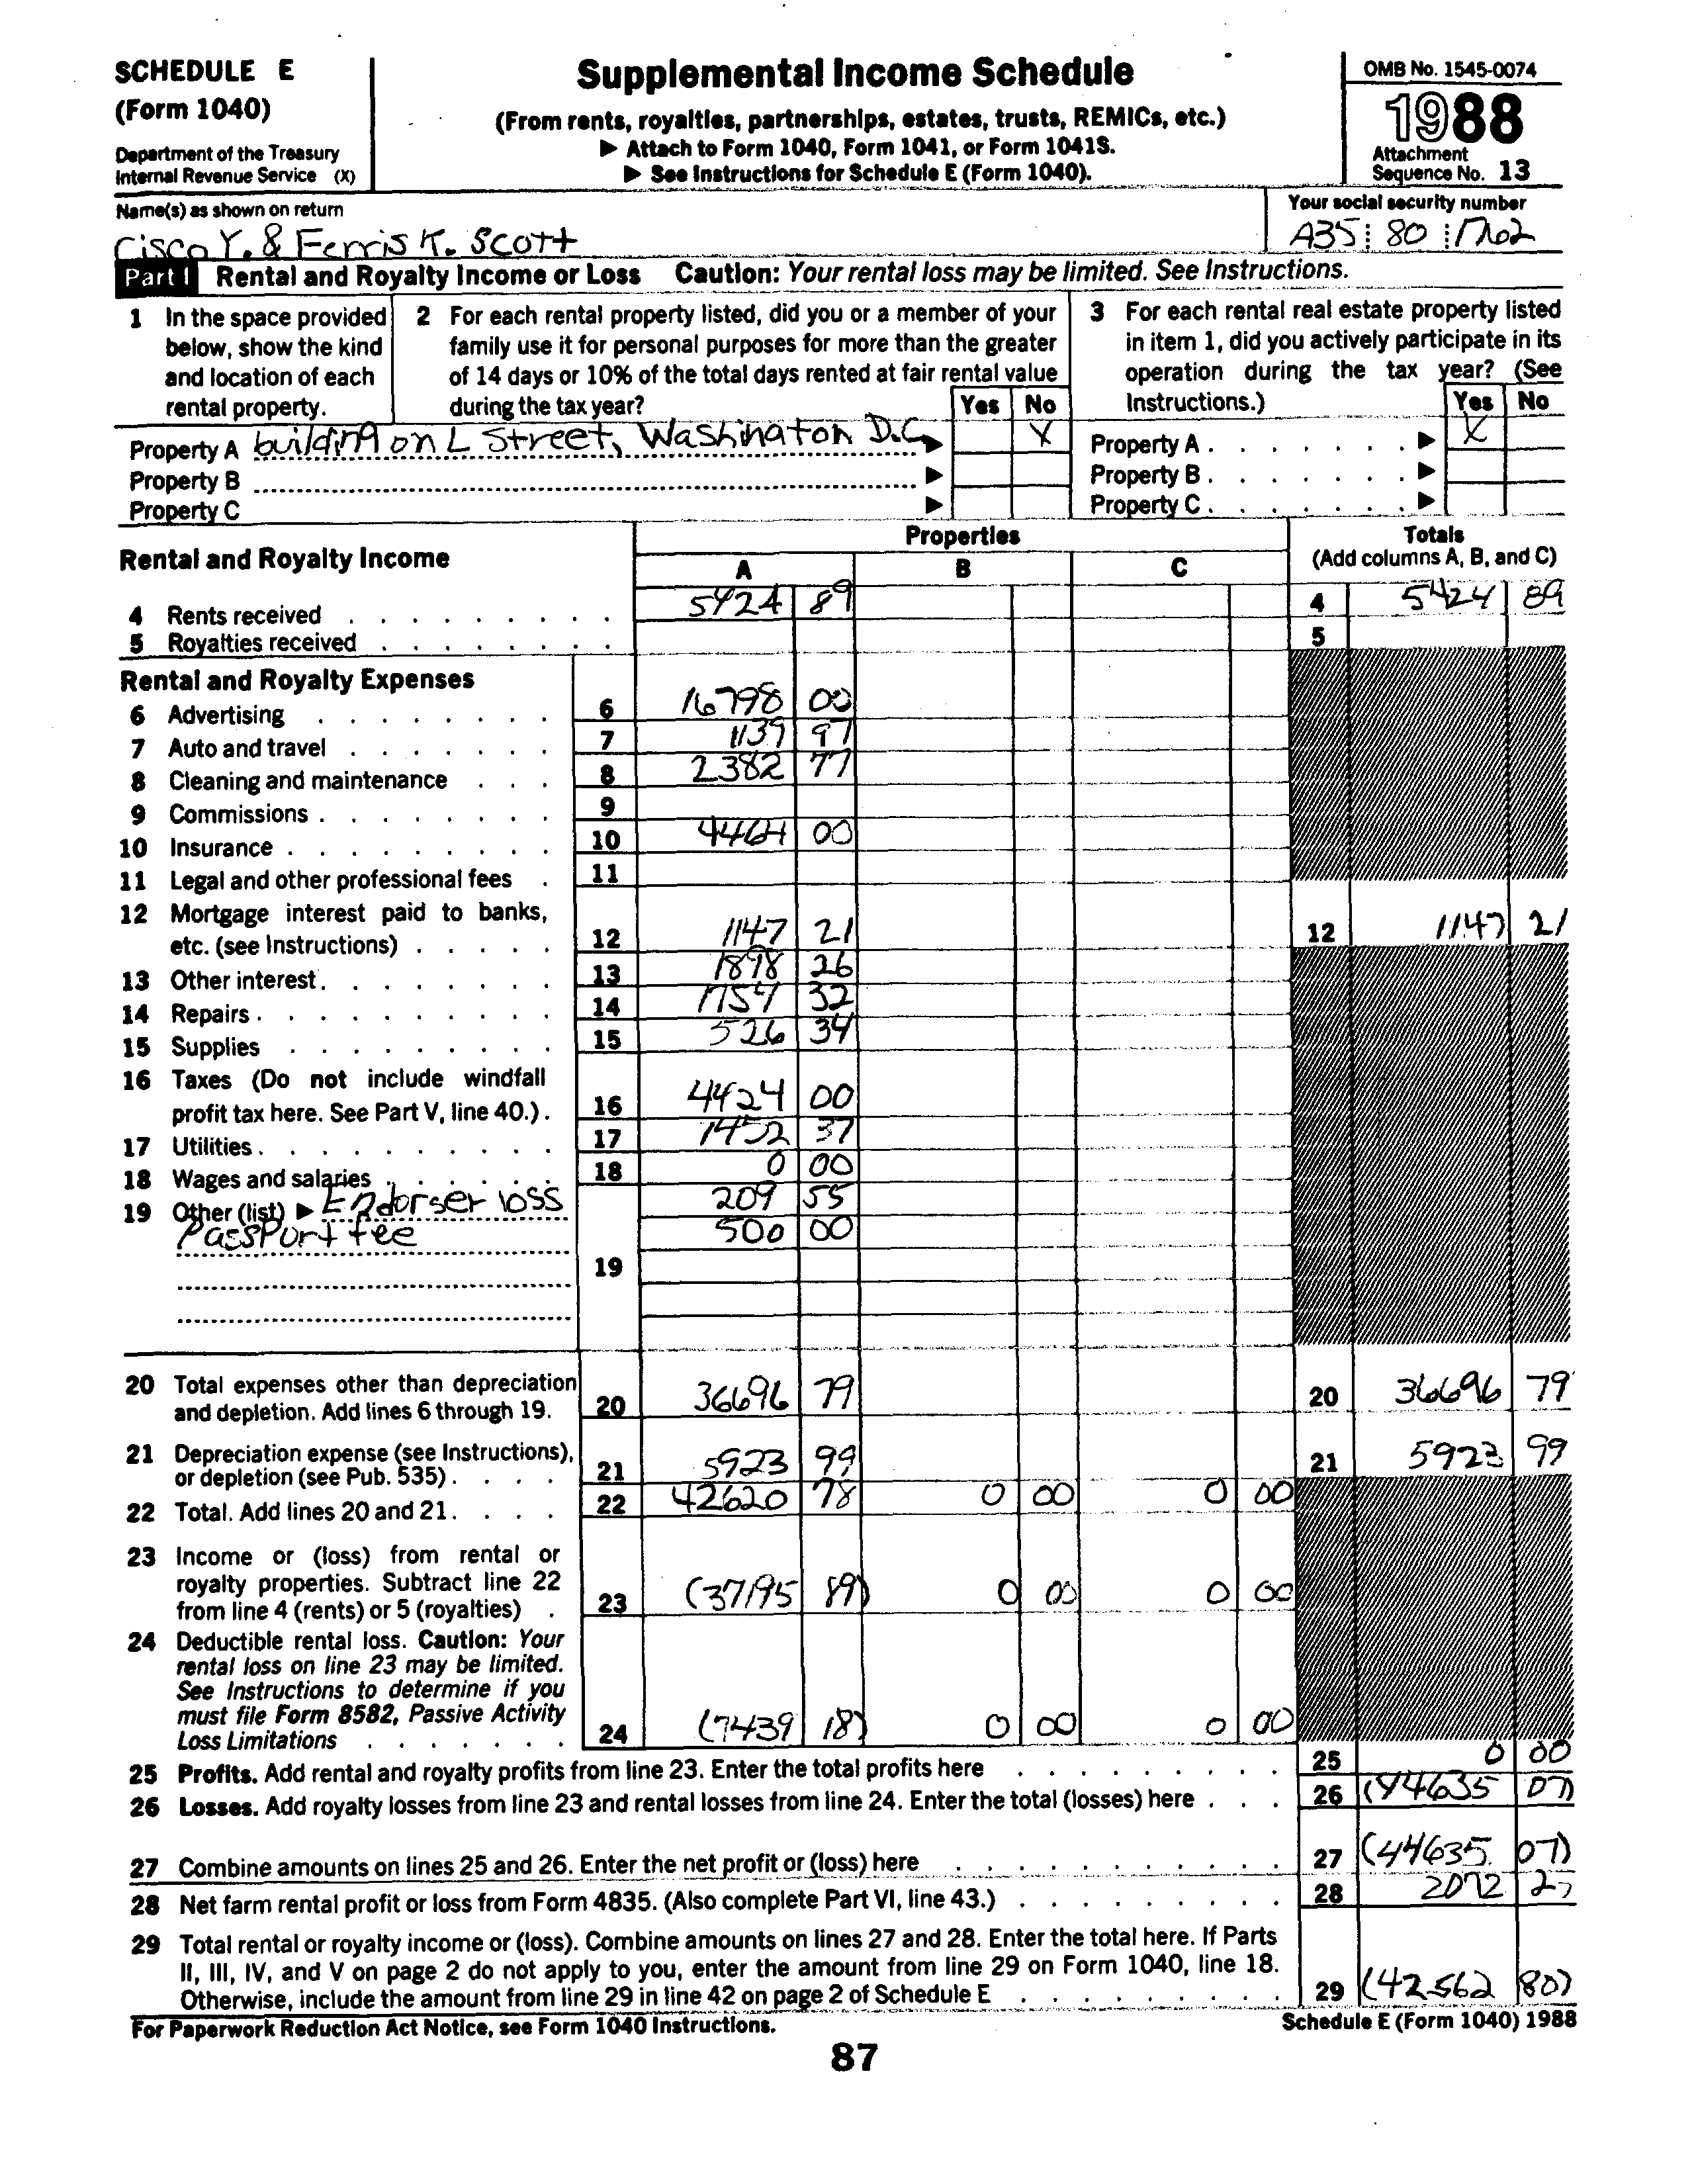 SCHEDULE E
(Form 1040)
Department of the Treasury
Internal Revenue Service (X)
Supplemental Income Schedule
(From rents, royalties, partnerships, estates, trusts, REMICs, etc.)
▶ Attach to Form 1040, Form 1041, or Form 1041S.
▶ See Instructions for Schedule E (Form 1040).
OMB No. 1545-0074
1988
Attachment
Sequence No. 13
Name(s) as shown on return
Cisco Y. & Ferris K. Scott
Your social security number
A35 80 1702
Part I Rental and Royalty Income or Loss Caution: Your rental loss may be limited. See Instructions.
1 In the space provided
below, show the kind
and location of each
rental property.
2 For each rental property listed, did you or a member of your
family use it for personal purposes for more than the greater
of 14 days or 10% of the total days rented at fair rental value
during the tax year? Yes No
3 For each rental real estate property listed
in item 1, did you actively participate in its
operation during the tax year? (See
Instructions.) Yes No
Property A building on L Street, Washington D.C. ▶ X
Property B ▶
Property C ▶
Property A . . . . . . . ▶ X
Property B . . . . . . . ▶
Property C . . . . . . . ▶
Rental and Royalty Income
Properties
A B C
Totals
(Add columns A, B, and C)
4 Rents received 5424 89 4 5424 89
5 Royalties received 5
Rental and Royalty Expenses
6 Advertising 6 16798 00
7 Auto and travel 7 1139 97
8 Cleaning and maintenance 8 2382 77
9 Commissions 9
10 Insurance 10 4464 00
11 Legal and other professional fees 11
12 Mortgage interest paid to banks,
etc. (see Instructions) 12 1147 21 12 1147 21
13 Other interest 13 1898 26
14 Repairs 14 1754 32
15 Supplies 15 526 34
16 Taxes (Do not include windfall
profit tax here. See Part V, line 40.) 16 4424 00
17 Utilities 17 1452 37
18 Wages and salaries 18 0 00
19 Other (list) ▶ Endorser loss 209 55
Passport fee 500 00
19
20 Total expenses other than depreciation
and depletion. Add lines 6 through 19. 20 36696 79 20 36696 79
21 Depreciation expense (see Instructions),
or depletion (see Pub. 535) 21 5923 99 21 5923 99
22 Total. Add lines 20 and 21 22 42620 78 0 00 0 00
23 Income or (loss) from rental or
royalty properties. Subtract line 22
from line 4 (rents) or 5 (royalties) 23 (37195 89) 0 00 0 00
24 Deductible rental loss. Caution: Your
rental loss on line 23 may be limited.
See Instructions to determine if you
must file Form 8582, Passive Activity
Loss Limitations 24 (7439 18) 0 00 0 00
25 Profits. Add rental and royalty profits from line 23. Enter the total profits here 25 0 00
26 Losses. Add royalty losses from line 23 and rental losses from line 24. Enter the total (losses) here 26 (44635 07)
27 Combine amounts on lines 25 and 26. Enter the net profit or (loss) here 27 (44635 07)
28 Net farm rental profit or loss from Form 4835. (Also complete Part VI, line 43.) 28 2072 27
29 Total rental or royalty income or (loss). Combine amounts on lines 27 and 28. Enter the total here. If Parts
II, III, IV, and V on page 2 do not apply to you, enter the amount from line 29 on Form 1040, line 18.
Otherwise, include the amount from line 29 in line 42 on page 2 of Schedule E 29 (42562 80)
For Paperwork Reduction Act Notice, see Form 1040 Instructions.
Schedule E (Form 1040) 1988
87